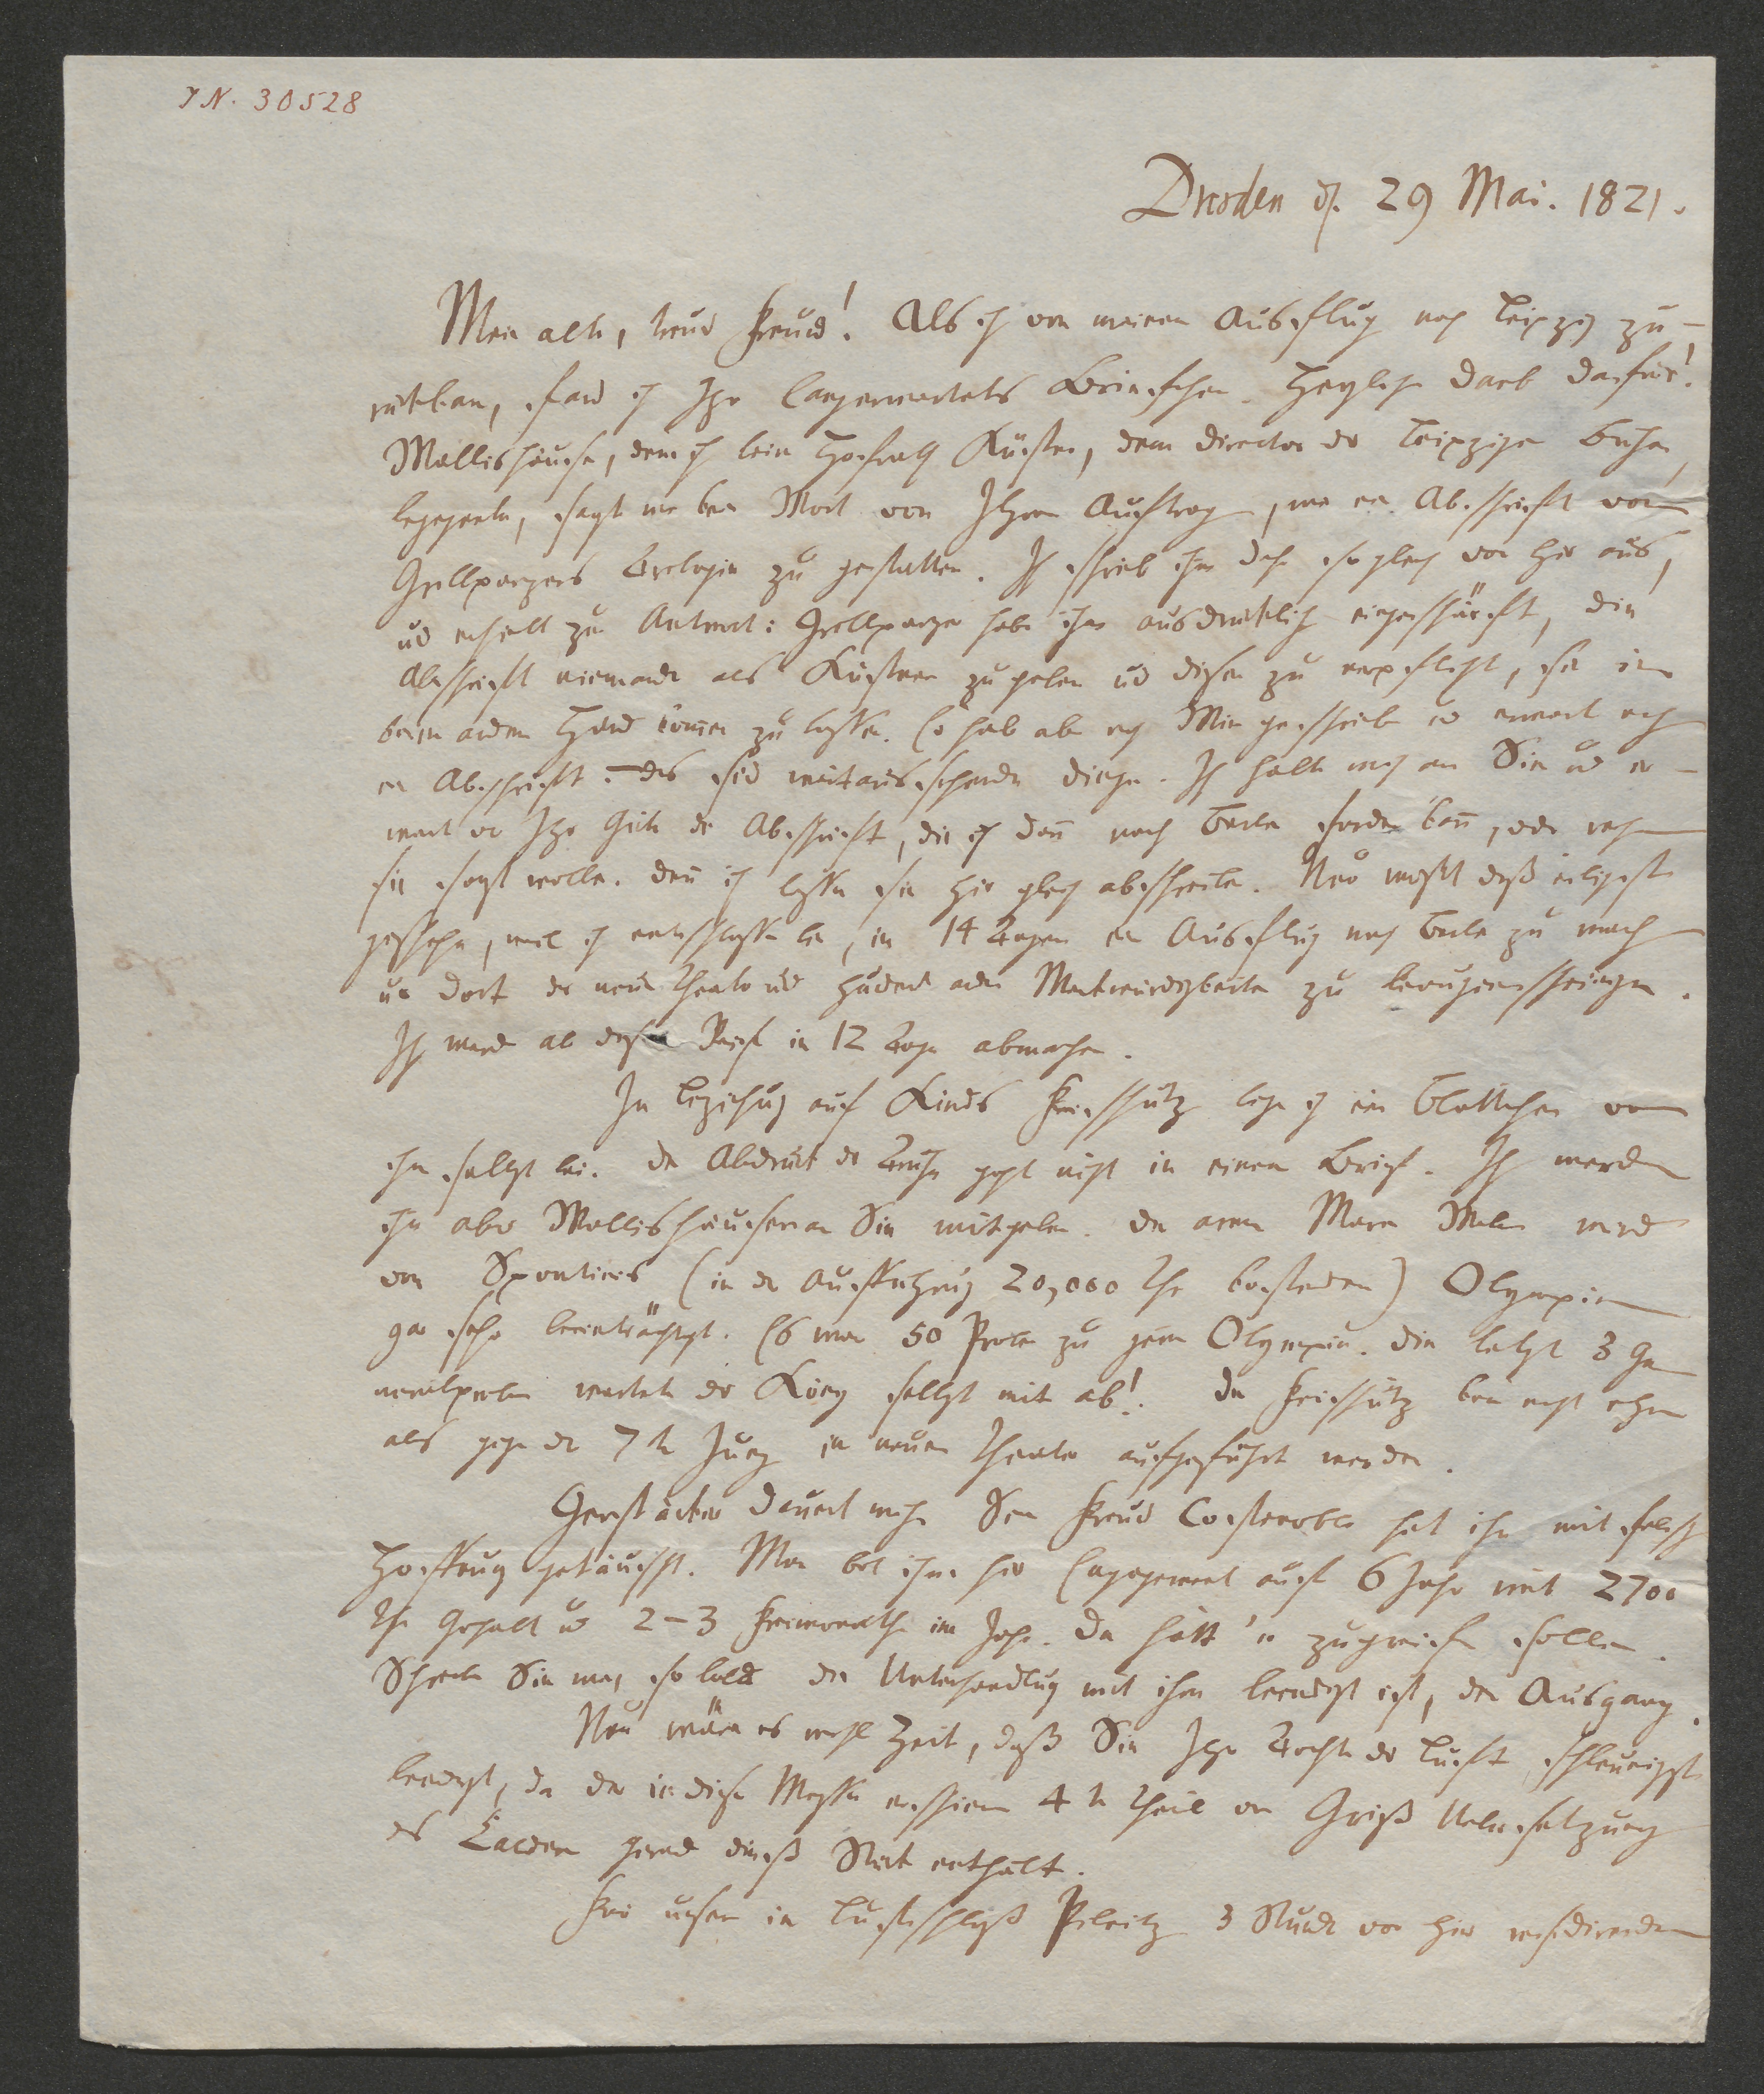 IN. 30528
Dresden d. 29 Mai. 1821.
Mein alter, treuer Freund! Als ich von meinem Ausflug nach Leipzig zu-
rückkam, fand ich Ihr langerwartetes Briefchen. Herzlichen Dank dafür!
Wallishauser, dem ich beim Hofrath Küstner, dem Director der Leipziger Bühne,
begegnete, sagte mir kein Wort von Ihrem Auftrag, mir eine Abschrift von
Grillparzers Trilogie zu gestatten. Ich schrieb ihm deßh. sogleich von hier aus,
und erhielt zur Antwort: Grillparzer habe ihm ausdrücklich eingeschärft, die
Abschrift niemande als Küstner zu geben und diesen zu verpflichten, sie in
keine andern Hände kommen zu lassen. Er habe aber nach Wien geschrieben und erwarte noch
eine Abschrift. Das sind weitaussehende Dinge. Ich halte mich an Sie und er-
warte von Ihrer Güte die Abschrift, die ich dann nach Berlin fördern kann, oder wohin
Sie sonst wollen. Denn ich lasse sie hier gleich abschreiben. Nur müßte dieß eiligst
geschehn, weil ich entschlossen bin, in 14 Tagen einen Ausflug nach Berlin zu machen
um dort das neue Theater und hundert andere Merkwürdigkeiten zu beaugenscheinigen.
Ich werde also diese Reise in 12 Tagen abmachen.
In Beziehung auf Kinds Freischütz lege ich ein Blättchen von
ihm selbst bei. Der Abdruck der geht nicht in einen Brief. Ich werde
ihn aber Wallishausern an Sie mitgeben. Der arme Maria Weber wird
von Spontinis (in der Aufführung 20,000 Thr kostenden) Olympia
gar sehr beeinträchtigt. Es waren 50 Proben zu jener Olympia. Die letzten 3 Ge-
neralproben wartete der König selbst mit ab! Der Freischütz kann nicht eher
als gegen den 7 ten Juny im neuen Theater aufgeführt werden.
Gerstäcker dauert mich. Sein Freund Costenoble hat ihn mit falscher
Hoffnung getäuscht. Man bot ihm hier Engagement auf 6 Jahre mit 2700
Thr Gehalt und 2-3 Freimonathe im Jahr. Da hätt' er zugreifen sollen.
Schreiben Sie mir, so bald die Unterhandlung mit ihm beendigt ist, den Ausgang.
Nun wäre es wohl Zeit, daß Sie Ihre Tochter der Luft schleunigst
beendigt, da der in dieser Messe erschienene 4 te Theil von Gries Uebersetzung
des Calderon gerade dieß Stück enthält.
Für unsern im Lustschloß Pilnitz 3 Stunden von hier residirenden